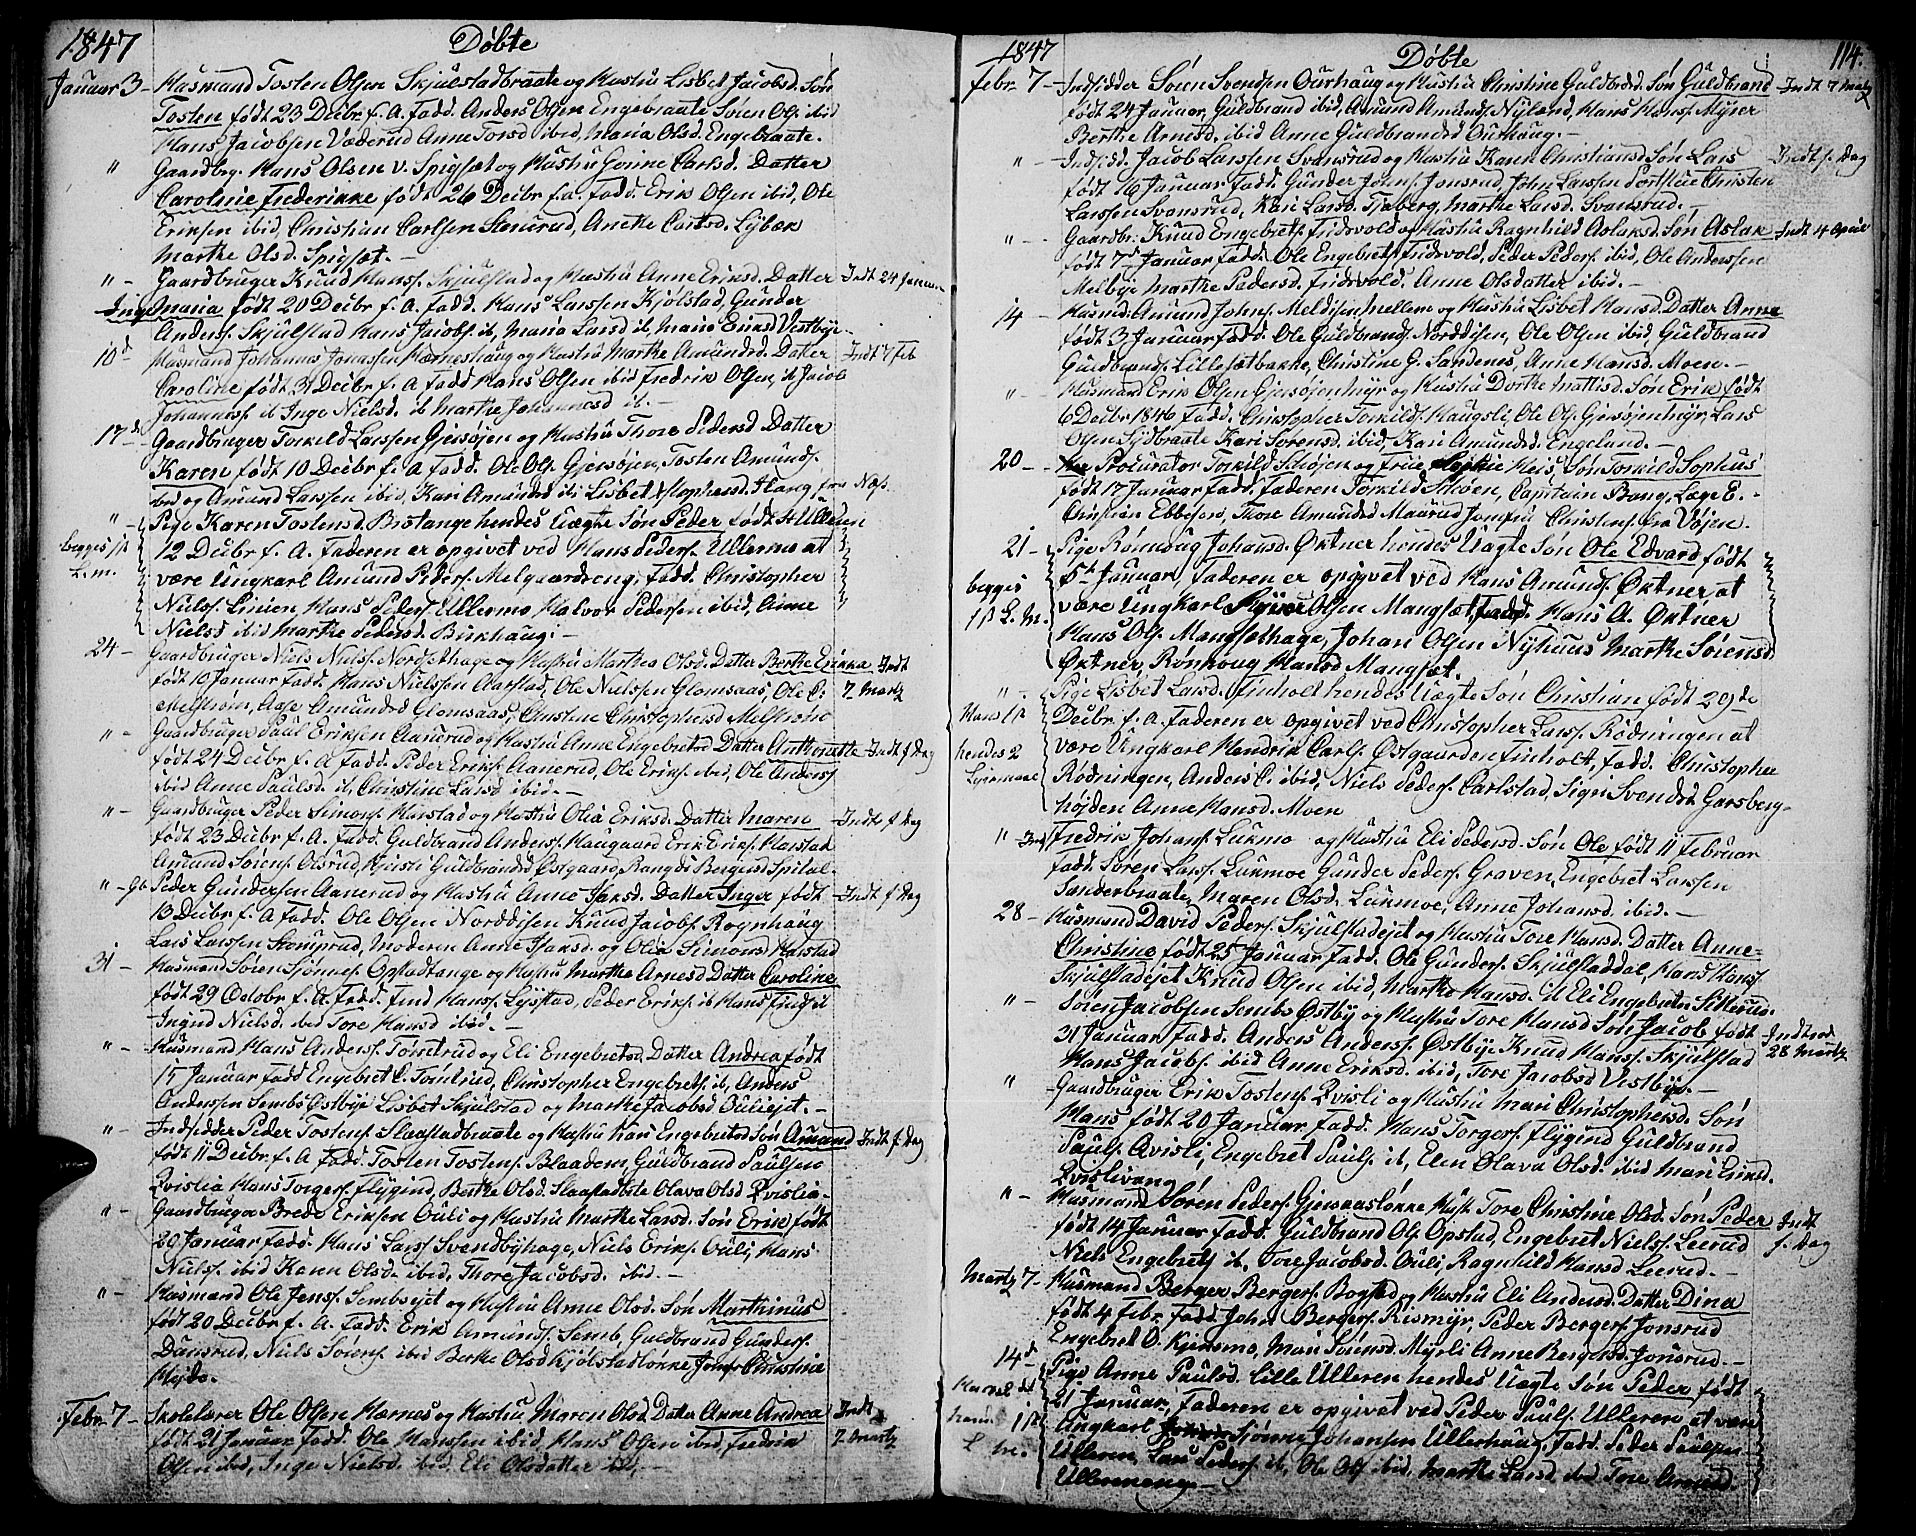 1847 Døbte
Januar 3 - Husmand Tosten Olsen Skjulstadbraate og Hustru Lisbet Jacobsd. Søn
Tosten født 23 Decbr f. A. Fadd. Anders Olsen Engebraate Søren Ols. ibid
Hans Jacobsen Væderud Anne Torsd ibid, Maria Olsd. Engebraate.
" Gaardbrg. Hans Olsen v. Spigset og Hustru Gonne Carlsd. Datter
Caroline Frederikke født 26 Decbr f. a. Fadd. Erik Olsen ibid, Ole
Eriksen ibid, Christian Carlsen Stenerud, Anethe Carlsd. Lybæk
Marthe Olsd. Spigset. -
" - Gaardbruger Knud Hans. Skjulstad og Hustru Anne Eriksd. Datter Indt 24 Januar
Ing Maria født 20 Decbr f. A. Fadd. Hans Larssen Kjølstad, Gunder
Anders. Skjulstad Hans Jacobs. it, Maria Larsd it, Marie Eriksd Vestbye -
10d Husmand Johannes Jonassen Hærneshaug og Hustru Marthe Amundsd. Datter Indt 7 Feb
Caroline født 31 Decbr f. A. Fadd Hans Olsen ibid Fredrik Olsen, it Jacob
Johannes. it Inge Nielsd. it Marthe Johannesd it. -
17d Gaardbruger Torkild Larssen Gjersøjen og Hustru Thore Pedersd Datter
Karen født 10 Decbr f. A. Fadd. Ole Ols. Gjersøjen, Tosten Amunds.
ibid og Amund Larssen ibid, Kari Amundsd ibi Lisbet Stophersd. Hang fra Næs
" - Pige Karen Tostensd. Brostange hendes Uægte Søn Peder født St Ulleren
begges 1ste L. m. 12 Decbr f. A. Faderen er opgivet ved Hans Peders. Ullermo at
være Ungkarl Amund Peders. Melgaardseng, Fadd. Christopher
Niels. Linien, Hans Peders. Ullermo Halvor Pedersen ibid, Anne
Nielsd ibid Marthe Pedersd. Birkhaug. -
24 - Gaardbruger Niels Niels. Nordsethage og Hustru Marthea Olsd. Datter Berthe Erikka Indt
født 10 Januar Fadd. Hans Nielssen Aarstad, Ole Nielssen Glomsaas, Ole C. 7 Martz
Melstrøm, Aase Amundsd Glomsaas, Christine Christophersd Melstrøm
" - Gaardbruger Paul Eriksen Aanerud og Hustru Anne Engebretsd Datter Anthonette - Indt f Dag
født 24 Decbr f. A. Fadd. Peder Eriks. Aanerud, Ole Eriks. ibid, Ole Anders
ibid Anne Paulsd. it, Christine Larsd ibid. -
" - Gaardbruger Peder Simons. Harstad og Hustru Olia Eriksd. Datter Maren - Indt f Dag
født 23 Decbr f. A. Fadd. Guldbrand Anders. Haugaard Erik Eriks. Harstad
Amund Sørens. Olsrud, Kjersti Guldbrandsd Østgaard, Rangdi Bergersd Spital
" - Gb Peder Gundersen Aanerud og Hustru Anne Isaksd. Datter Inger født - Indt f Dag
13 Decbr f. A. Fadd. Ole Olsen Norddisen Knud Jacobs. Rognhaug
Lars Larssen Stomprud, Moderen Anne Isaksd. og Olia Simonsd Harstad
31 - Husmand Søren Sjønnes. Opstadtange og Hustru Marthe Arnesd Datter Caroline
født 29 Octobr f. A. Fadd. Find Hans. Lystad, Peder Eriks. it Hans Finds it
Ingrid Nielsd. ibid Tore Hansd ibid. -
" - Husmand Hans Anders. Tømtrud og Eli Engebretsd. Datter Andrea født
15 Januar Fadd Engebret C. Tomtrud, Christopher Engebrets. it, Anders
Anderssen Sembs Østbye Lisbet Skjulstad og Marthe Jacobsd Ouliejet. -
" - Indsidder Peder Tostens. Slaastadbraate og Hustru Kari Engebretsd Søn Amund Indt f. Dag
født 11 Decbr f. A Fadd. Tosten Tostens. Blaadem, Guldbrand Paulsen
Qvislia Hans Torgers. Flygind, Berthe Olsd. Slaastadbte Olava Olsd Qvislia -
" - Gaardbruger Brede Eriksen Ouli og Hustru Marthe Larsd. Søn Erik født
20 Januar Fadd. Hans Larss Svendbyhage, Niels Eriks. Ouli, Hans
Niels. ibid Karen Olsd. ibid, Thore Jacobsd. ibid. -
" - Husmand Ole Jens. Sembsejet og Hustru Anne Olsd. Søn Marthinus
født 20 Decbr f. A. Fadd. Erik Amunds. Semb, Guldbrand Gunders.
Dansrud, Niels Sørens. ibid Berthe Olsd Kjølstadløkke Christine
Myde.
Febr. 7 - Skolelærer Ole Olsen Hærnæs og Hustru Maren Olsd Datter Anne Andrea Indt
født 21 Januar Fadd. Ole Hanssen ibid, Hans Olsen ibid, Fredrik 7 Martz
Olsen ibid, Inge Nielsd. ibid. Eli Olsdatter ibid. -
1847 Døbte 114.
Febr. 7 - Indsidder Søren Svendsen Ourhaug og Hustru Christine Guldbrdsd. Søn Guldbrand Indt 7 Martz
født 24 Januar, Guldbrand ibid, Amund Amunds. Nyland, Hans Hans. Myrer
Berthe Arnesd. ibid Anne Guldbrandsd Ourhaug. -
" - Indsidd. Jacob Larssen Svansrud og Hustru Karen Christiansd. Søn Lars - Indt f. Dag
født 16 Januar Fadd. Gunder Johns. Jonsrud, John Larssen Christen
Larssen Svansrud, Kari Larsd. Tjaberg, Marthe Larsd. Svansrud. -
" - Gaardbr. Knud Engebrets. Fridsvold og Hustru Ragnhild Aslaksd. Søn Aslak Indt 4 April
født 7d Januar Fadd. Ole Engebrets Fridsvold, Peder Peders. ibid, Ole Anderssen
Melbye Marthe Pedersd. Fridsvold. Anne Olsdatter ibid. -
14 - Husmd. Amund Johns. Meldisen mellem og Hustru Lisbet Hansd. Datter Anne
født 3 Januar Fadd. Ole Guldbrands. Norddisen, Ole Olsen ibid, Guldbrand
Guldbrands. Lillesætbakke, Christine G. Sandenes, Anne Hansd. Moen. -
" - Husmand Erik Olsen Gjersøjenmyr og Hustru Dorthe Mattisd. Søn Erik født
6 Decbr 1846 Fadd. Christopher Torkilds. Haugsli, Ole Ols. Gjersøjenmyr, Lars
Olsen Sydbraate Kari Sorensd. ibid, Kari Amundsd. Engeland. -
20 - Procurator Torkild Schøjen og Frue Sophie Heis, Søn Torkild Sophus
født 17 Januar Fadd. Faderen Torkild Schøen, Capitain Bang, Læge E. -
Christian Ebbesen, Thore Amundsd Maarud Jomfru Christens. fra Vøjen.
21 - Pige Rønnoug Johansd. Øktner hendes Uægte Søn Ole Edvard født
begges 1ste L. M. 5te Januar, Faderen er opgivet ved Hans Amunds. Øktner at
være Ungkarl Olsen Mangset, Fadd. Hans A. Øktner
Hans Ols. Mangsethage, Johan Olsen Nyhuus Marthe Sørensd.
Øktner, Rønnoug Hansd Mangset.
" - Pige Lisbet Larsd. Finholt hendes Uægte Søn Christian født 29de
Hans 1ste hendes 2 Leiermaal Decbr. f. A. Faderen er opgivet ved Christopher Larss. Rødningen at
være Ungkarl Hendrik Carls. Østgaarden Finholt, Fadd. Christopher
Rødningen, Anders C. ibid, Niels Peders. Carlstad, Sigri Svendsd. Garsberg-
højden Anne Hansd. Moen
" Ind. Fredrik Johans. Lukmo og Hustru Eli Pedersd. Søn Ole født 11 Februar
Fadd. Soren Larss. Lukmoe Gunder Peders. Graven, Engebret Larssen
Sanderbraate, Maren Olsd. Lukmoe, Anne Johansd. ibid. -
28 - Husmand David Peders. Skjulstadejet og Hustru Tore Hansd. Datter Anne-
Christine født 25 Januar Fadd. Ole Gunders. Skjulstaddal, Hans Hans.
Skjulstadejet Knud Olsen ibid, Marthe Hansd. it Eli Engebretsd Sitterud.
" - Søren Jacobsen Sembs Østby og Hustru Tore Hansd Søn Jacob født - Indterd
31 Januar Fadd. Anders Anders. Østbye Knud Hans. Skjulstad 28 Martz
Hans Jacobs. ibid Anne Eriksd. ibid, Tore Jacobsd Vestbye. -
" - Gaardbruger Erik Tostens. Qvisli og Hustru Mari Christophersd. Søn
Hans født 20 Januar Fadd. Hans Torgers. Flygind Guldbrand
Pauls. Qvisli, Engebret Pauls. it, Elen Olava Olsd. ibid Mari Eriksd.
Qvislivang
" - Husmand Søren Peders. Gjersaasløkke Hust. Tore Christine Olsd. Søn Peder Indt
født 14 Januar Fadd. Guldbrand Ols. Opstad, Engebret Niels. Leerud f. Dag
Niels Engebrets it, Tore Jacobsd. Ouli, Ragnhild Hansd Leerud. -
Martz 7 - Husmand Berger Bergers. Bogstad og Hustru Eli Andersd. Datter Dina
født 4 Febr. Fadd. John Bergers. Rismyr, Peder Bergers. Jonsrud
Engebret O. Kjensmo, Mari Sørensd. Myrli Anne Bergersd. Jonsrud. -
14d Pige Anne Paulsd. Lille Ulleren hendes Uægte Søn Peder født
21 Januar, Faderen er opgivet ved Peder Pauls. Ulleren at være
Ungkarl Sjønne Johansen Ullerhaug, Fadd. Peder Paulsen
Ulleren, Lars Peders. it, Ole Ols. ibid, Marthe Larsd. ibid Tore Arnesd.
Ullereneng. -